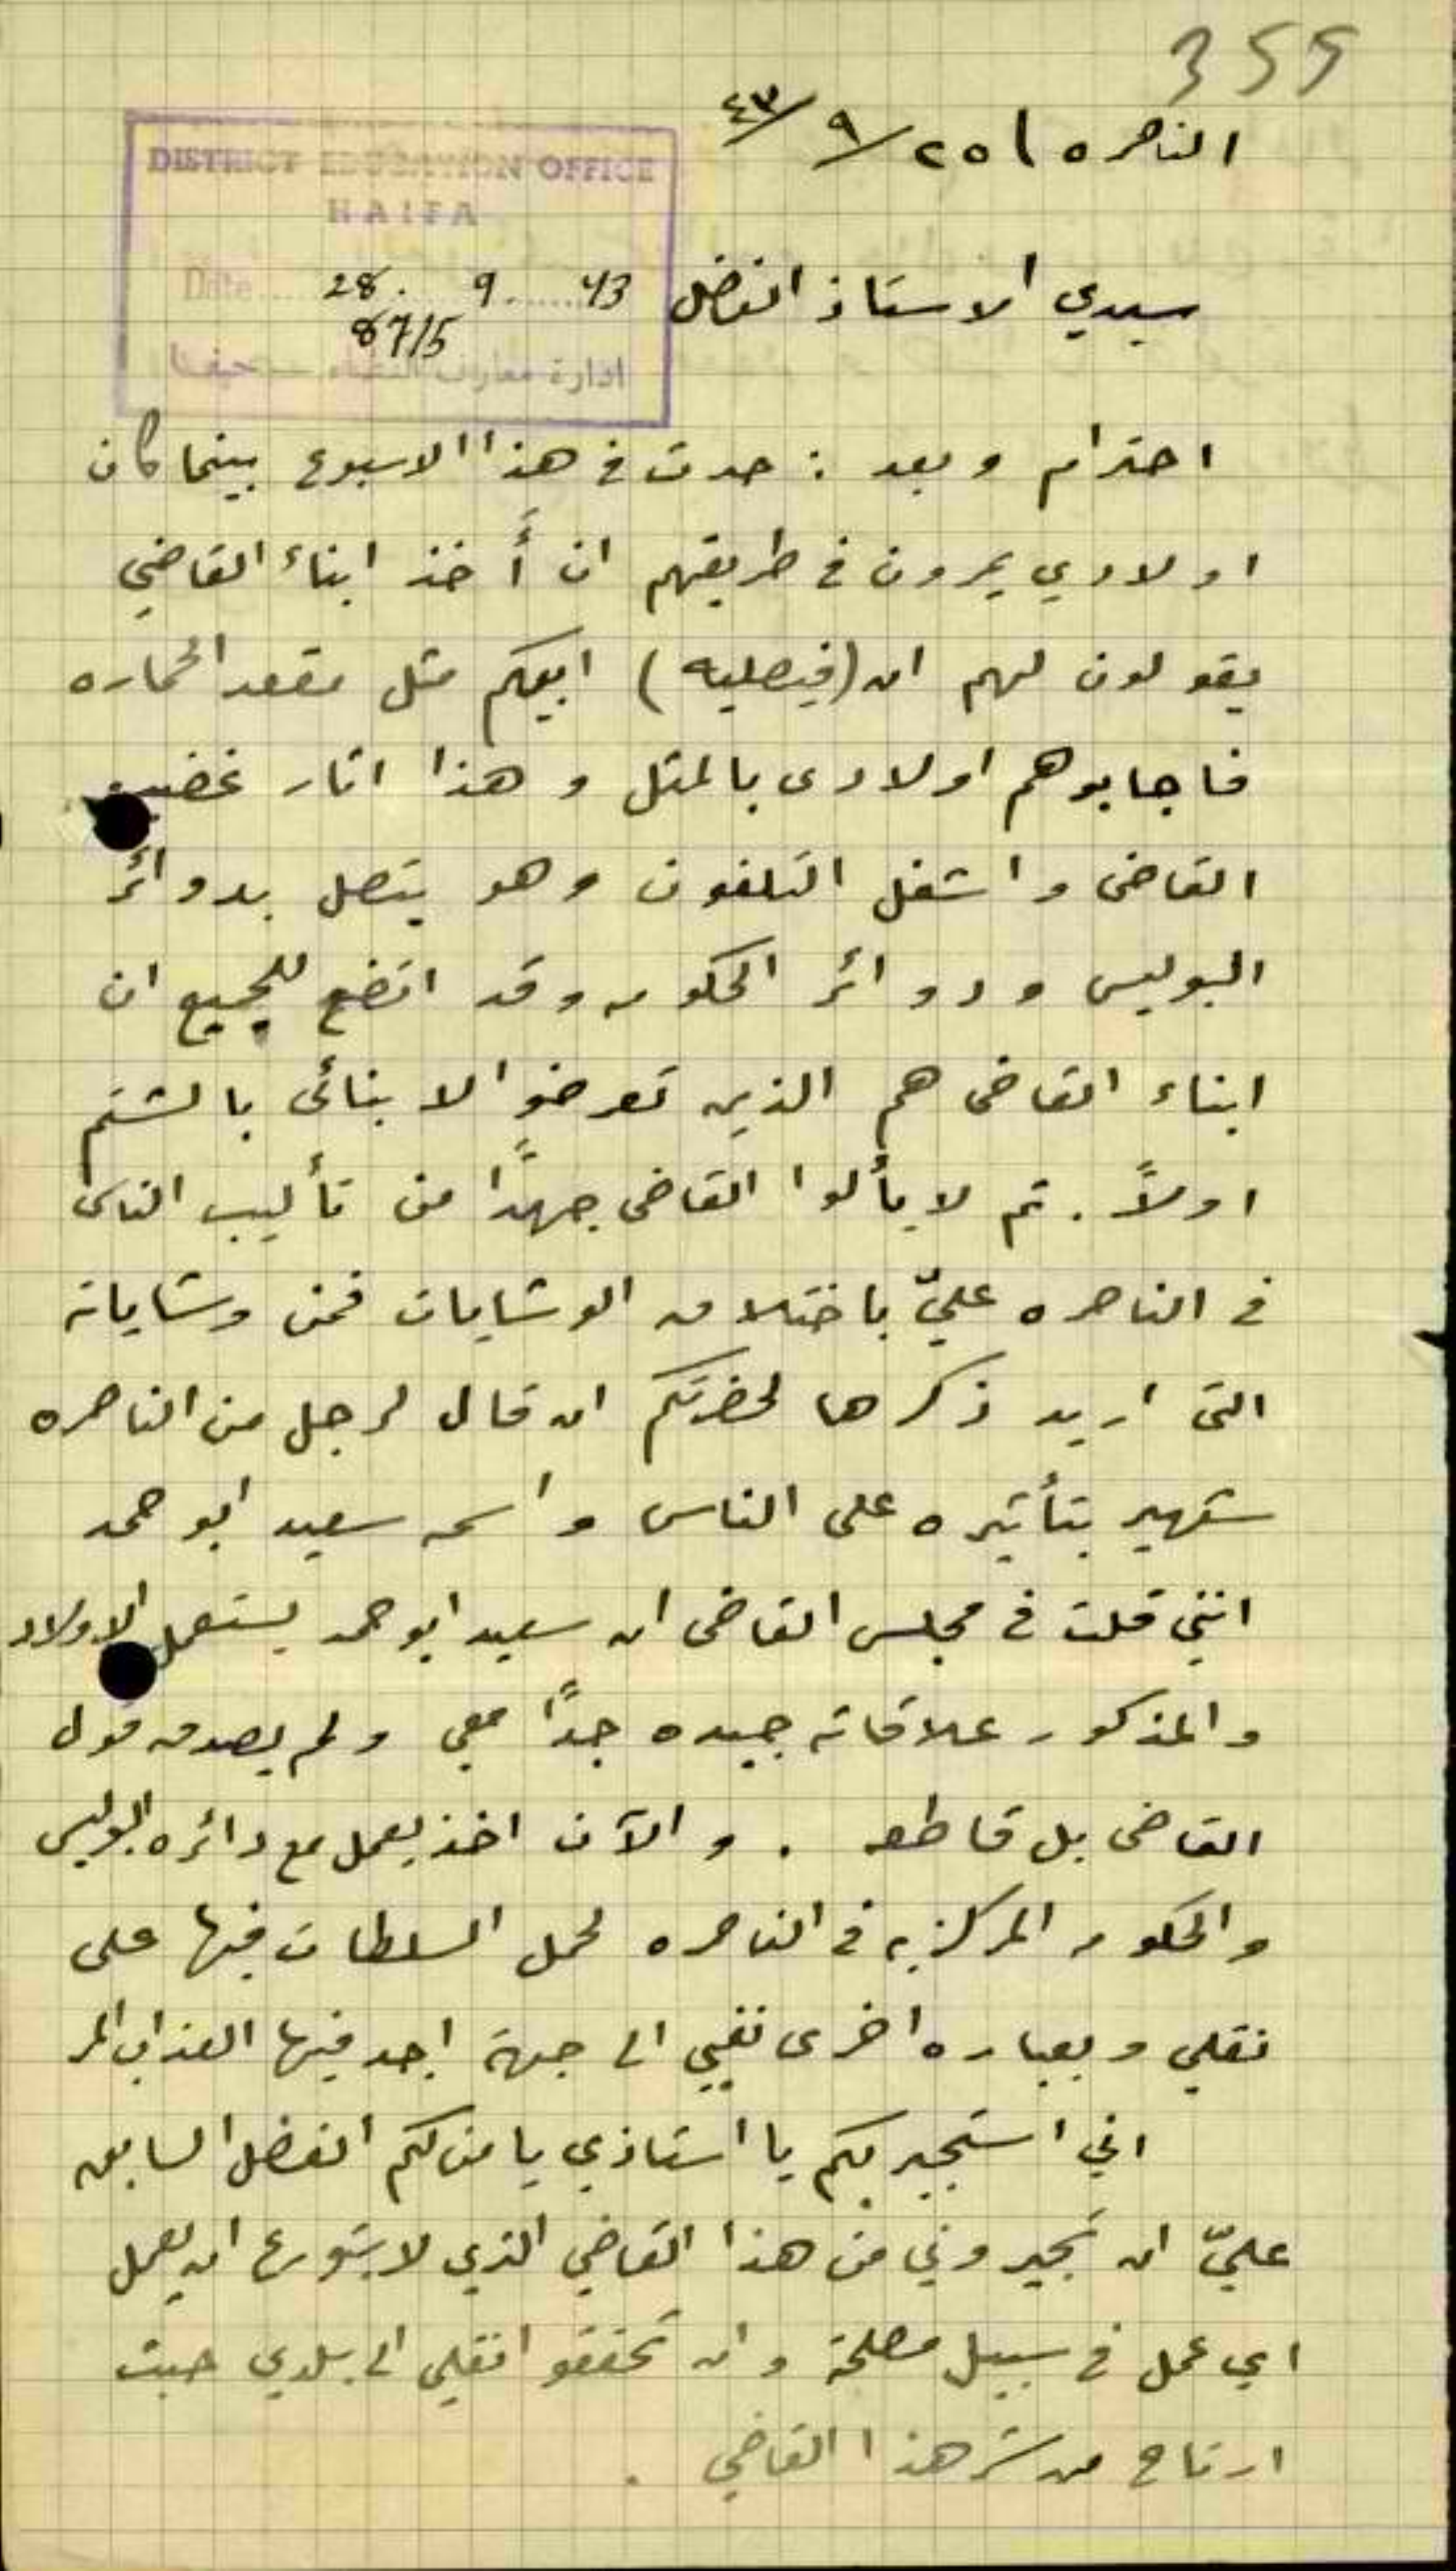 355
الناصره ٢٥/٩/٤٣
DISTRICT EDUCATION OFFICE
HAIFA
Date 28. 9. 43
87/5
ادارة معارف اللواء حيفا
سيدي الاستاذ المفضل
احترام وبعد : حدث في هذا الاسبوع بينما كان
اولادي يمرون في طريقهم ان أخذ ابناء القاضي
يقولون لهم ان (فيصلية) ابيكم مثل مقعد الحماره
فاجابوهم اولادى بالمثل وهذا اثار غضب
القاضى واشغل التلفون وهو يتصل بدوائر
البوليس ودوائر الحكومه وقد اتضح للجميع ان
ابناء القاضى هم الذين تعرضوا لابنائى بالشتم
اولاً . ثم لا يألوا القاضى جهدًا من تأليب الناس
في الناصره عليّ باختلاق الوشايات فمن وشاياته
التى اريد ذكرها لحضرتكم ان قال لرجل من الناصره
شهير بتأثيره على الناس واسمه سعيد ابو حمد
انني قلت في مجلس القاضى ان سعيد ابو حمد يستعمل الاولاد
والمذكور علاقاته جيده جدًا معي ولم يصدق قول
القاضى بل قاطعه . والآن اخذ يعمل مع دائره البوليس
والحكومه المركزيه في الناصره لحمل السلطات فيها على
نقلي وبعباره اخرى نفيي الى جهة اجد فيها العذاب المر
اني استجير بكم يا استاذي يا من لكم الفضل السابق
عليّ ان تجيروني من هذا القاضي الذي لا يتورع ان يعمل
اي عمل في سبيل مصلحته وان تحققوا نقلي الى بلدي حيث
ارتاح من شر هذا القاضي .